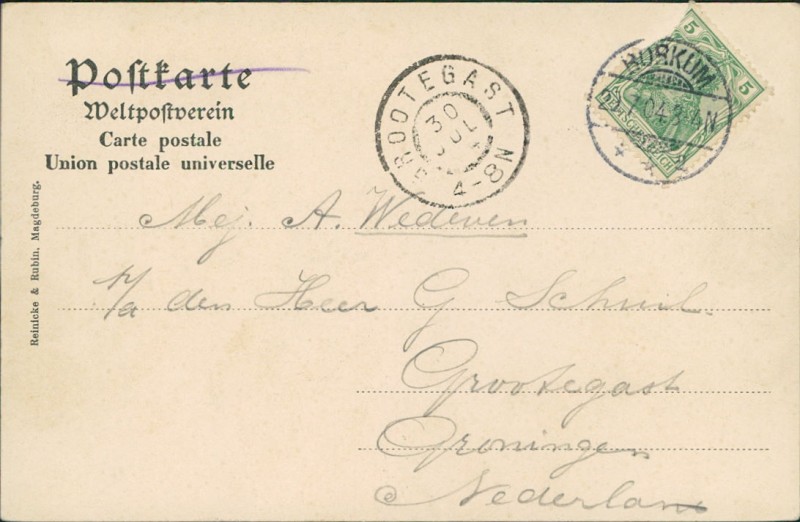 Postkarte
Weltpostverein
Carte postale
Union postale universelle
GROOTEGAST
30
JUL
4-8N
BORKUM
04.3-4N
5
5
Mej. A. Wedeven
p/a den Heer G Schuil.
Grootegast
Groningen
Nederland
Reinicke & Rubin, Magdeburg.